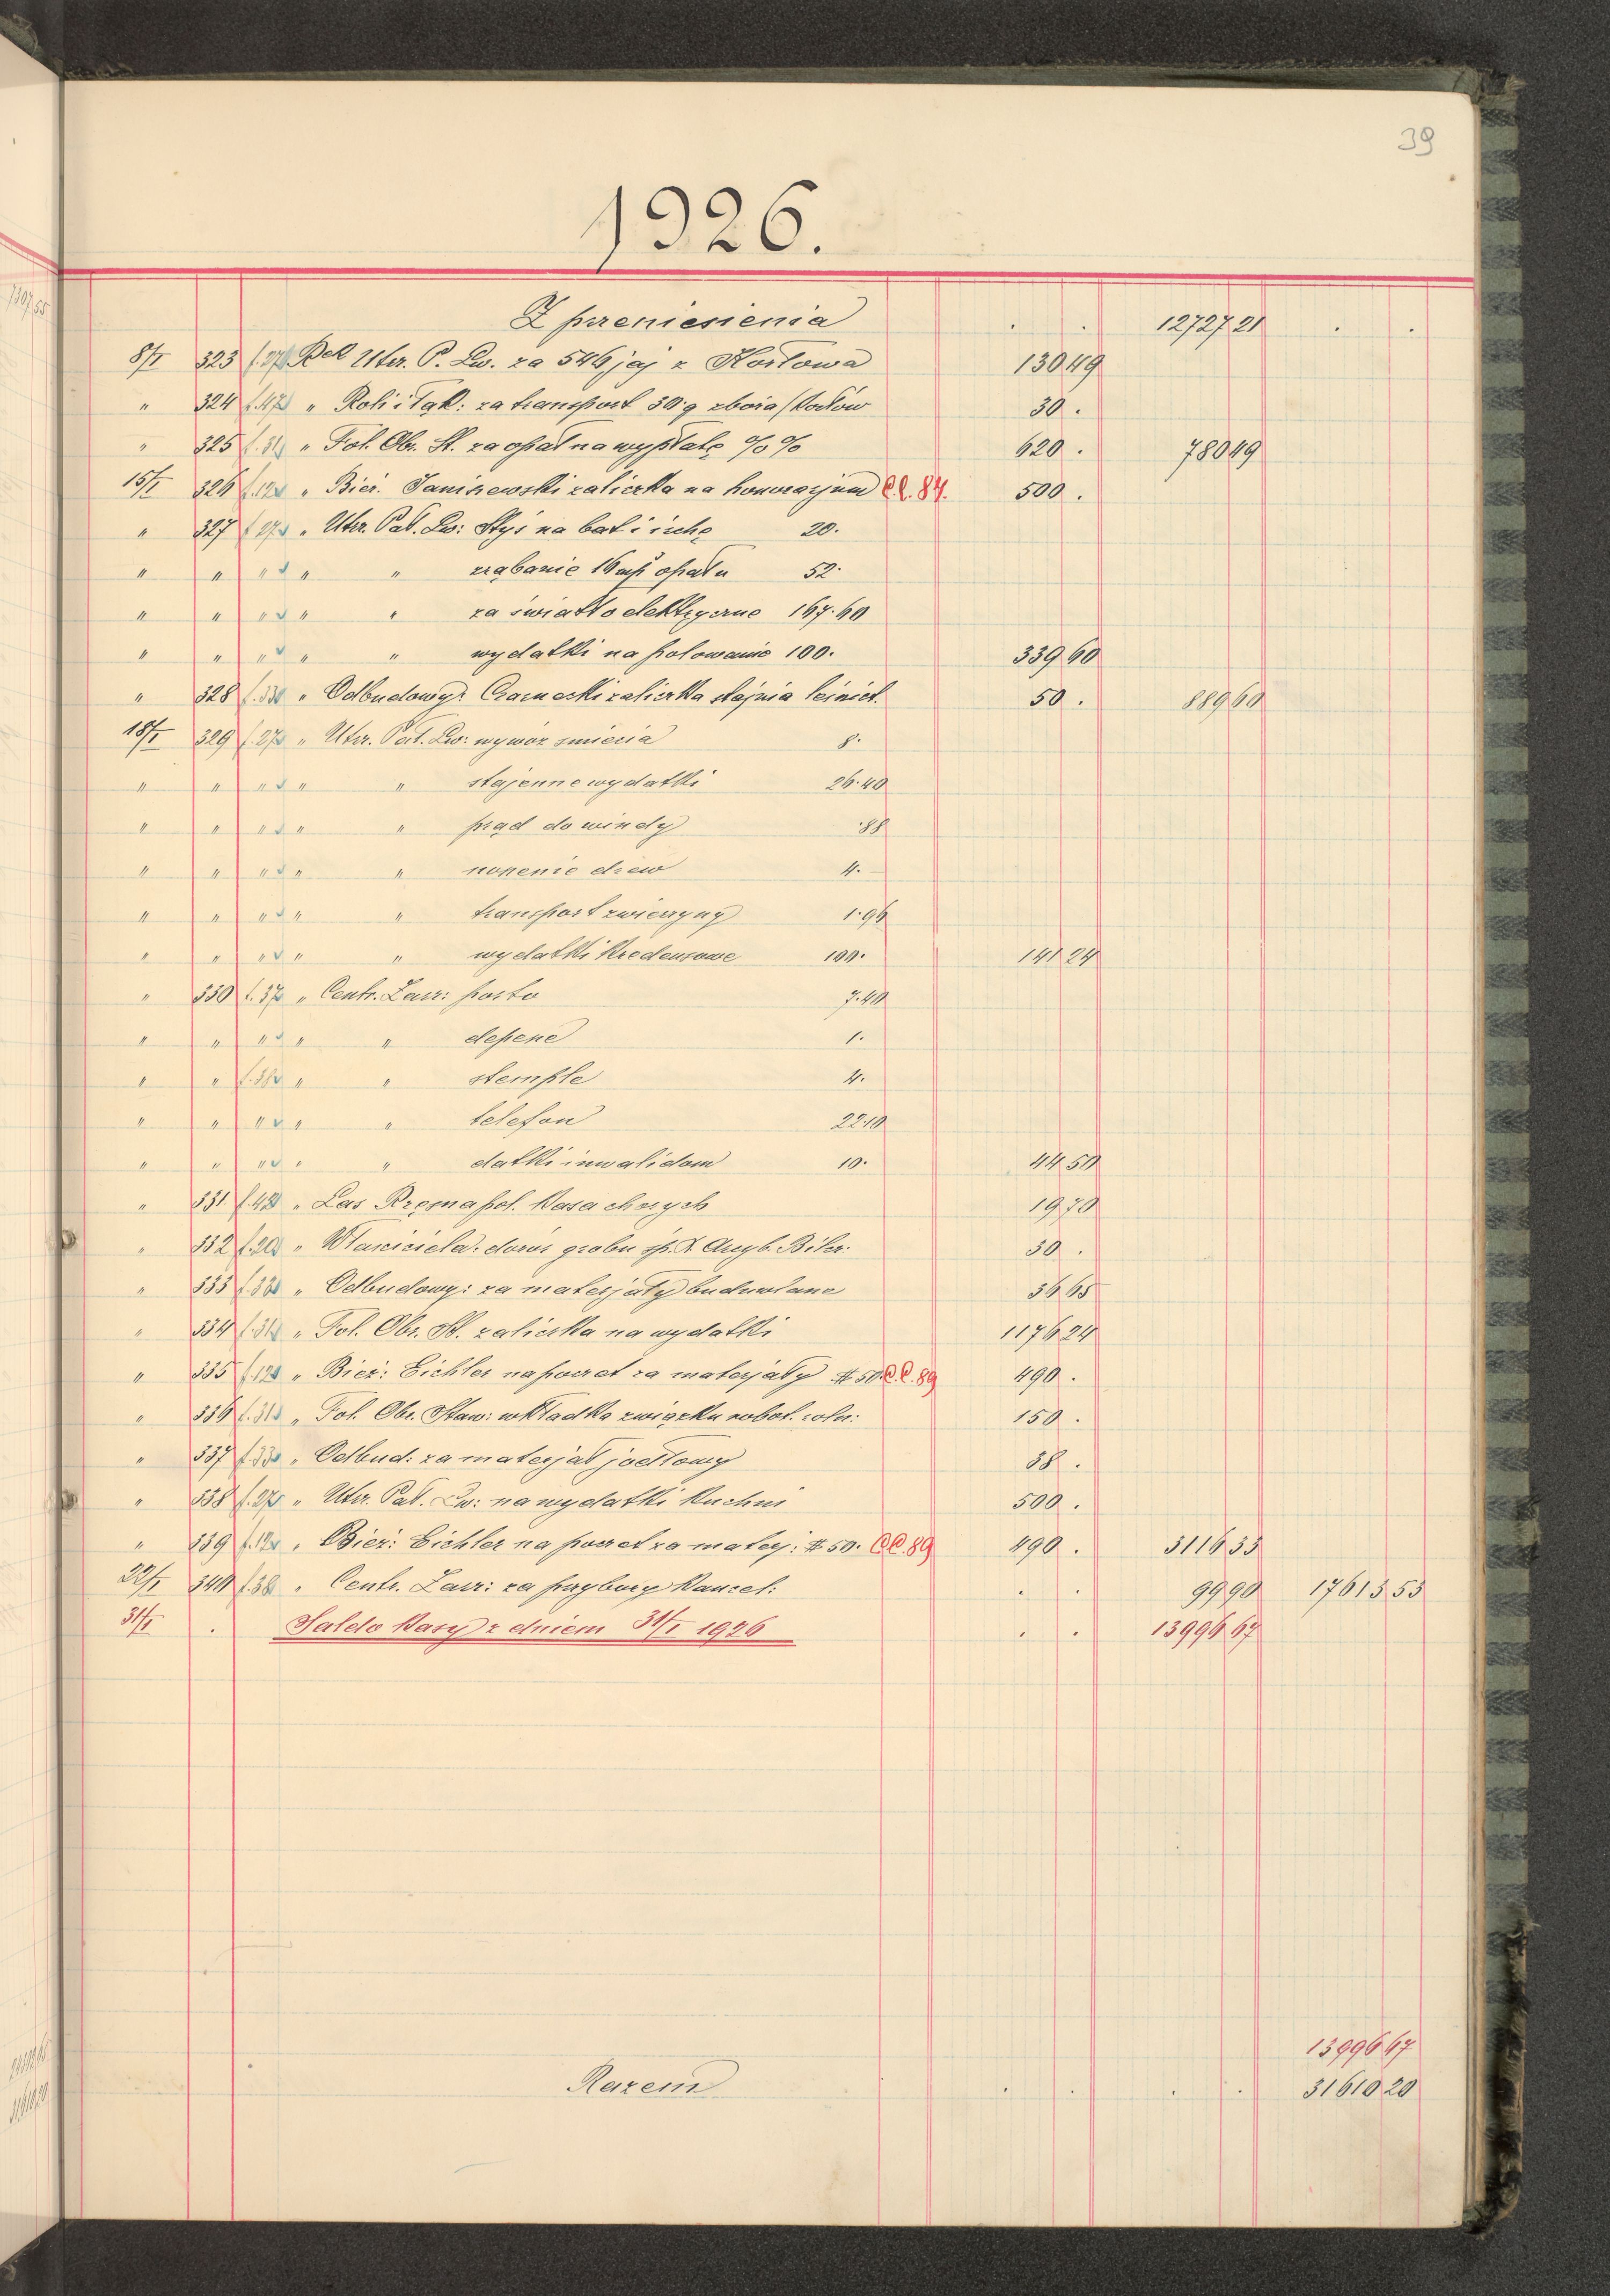 39
1926.
Z przeniesienia . . 12727 21 . .
8/I 323 f.27 Rek Utrz. P. Lw. za 546 jaj z Kozłowa 130 49
" 324 f.47 " Roli i Łąk: za transport 30 q zboża 30 .
" 325 f.31 " Fol. Obr. St. za opał na wypłatę %% 620 . 780 49
15/I 326 f.12 " Bież. Janiszewski zaliczka na honorarjum C.C. 84. 500 .
" 327 f.27 " Utrz. Pał. Lw: Styś na bat i 20.
" " " " " zrąbanie 16 opału 52.
" " " " " za światło elektryczne 167.60
" " " " " wydatki na polowanie 100. 339 60
" 328 f.33 " Odbudowy: Czarnecki zaliczka stajnia leśnict. 50 . 889 60
18/I 329 f.27 " Utrz. Pał. Lw: wywóz śmiecia 8.
" " " " " stajenne wydatki 26.40
" " " " " prąd do windy .88
" " " " " noszenie drew 4.—
" " " " " transport zwierzyny 1.96
" " " " " wydatki kredensowe 100. 141 24
" 330 f.37 " Centr. Zarz: porto 7.40
" " " " " depesze 1.
" " f.38 " " stemple 4.
" " " " " telefon 22.10
" " " " " datki inwalidom 10. 44 50
" 331 f.48 " Las Rzęsna pol. Kasa chorych 19 70
" 332 f.20 " Właściciela: dozór grobu śp. X. Arcyb. Bilcz. 30 .
" 333 f.33 " Odbudowy: za materjały budowlane 56 65
" 334 f.31 " Fol. Obr. St. zaliczka na wydatki 1176 24
" 335 f.12 " Bież: Eichler na poczet za materjały # 50. C.C. 89 490 .
" 336 f.31 " Fol. Obr. Staw: wkładka związku robot. roln: 150 .
" 337 f.33 " Odbud: za materjał jodłowy 38 .
" 338 f.27 " Utrz. Pał. Lw: na wydatki kuchni 500 .
" 339 f.12 " Bież: Eichler na poczet za materj: # 50. C.C. 89 490 . 3116 33
22/I 340 f.38 " Centr. Zarz: za przybory kancel: . . 99 90 17613 53
31/I . Saldo kasy z dniem 31/I 1926 . . 13996 67
13996 67
Razem . . . . 31610 20